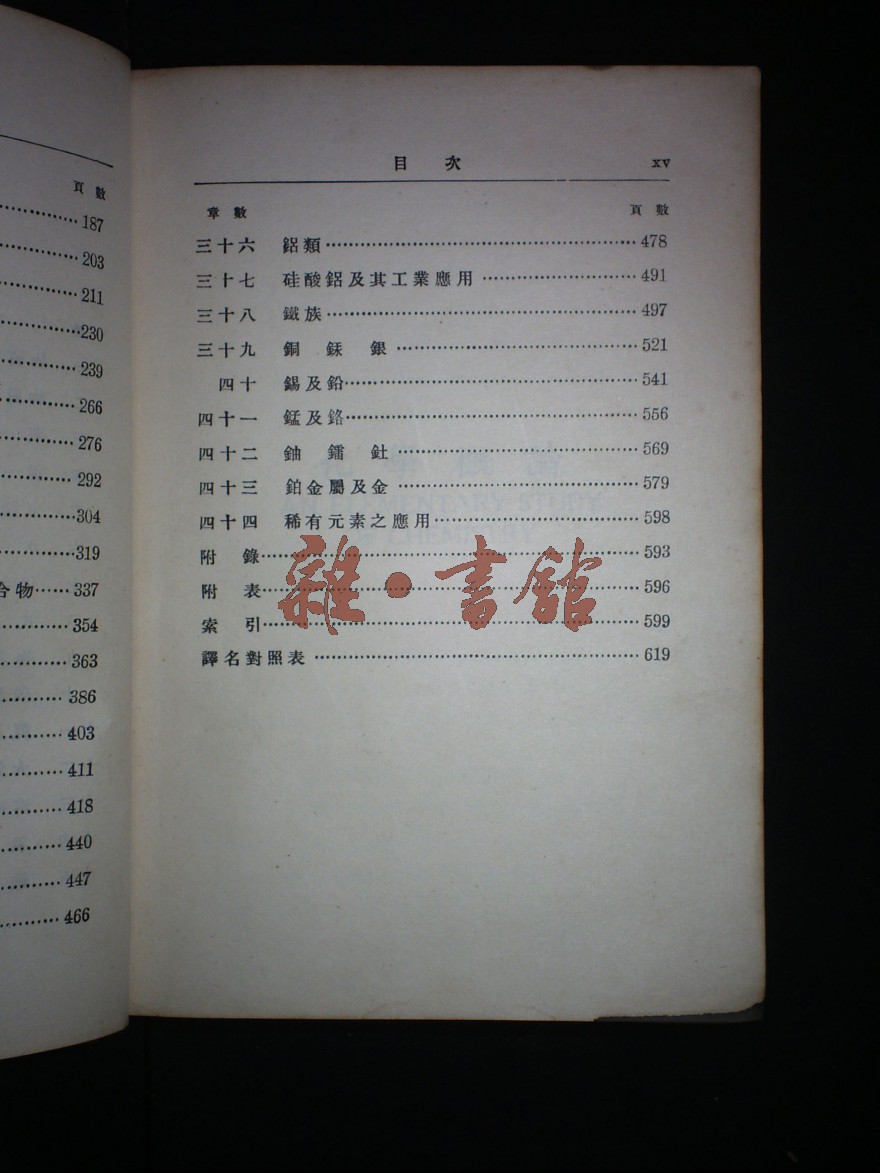 頁數
187
203
211
230
239
266
276
292
304
319
合物 337
354
363
386
403
411
418
440
447
466
目次 xv
章數 頁數
三十六 鋁類 478
三十七 硅酸鋁及其工業應用 491
三十八 鐵族 497
三十九 銅 銾 銀 521
四十 錫及鉛 541
四十一 錳及鉻 556
四十二 鈾 鐳 釷 569
四十三 鉑金屬及金 579
四十四 稀有元素之應用 598
附錄 593
附表 596
索引 599
譯名對照表 619
雜·書館